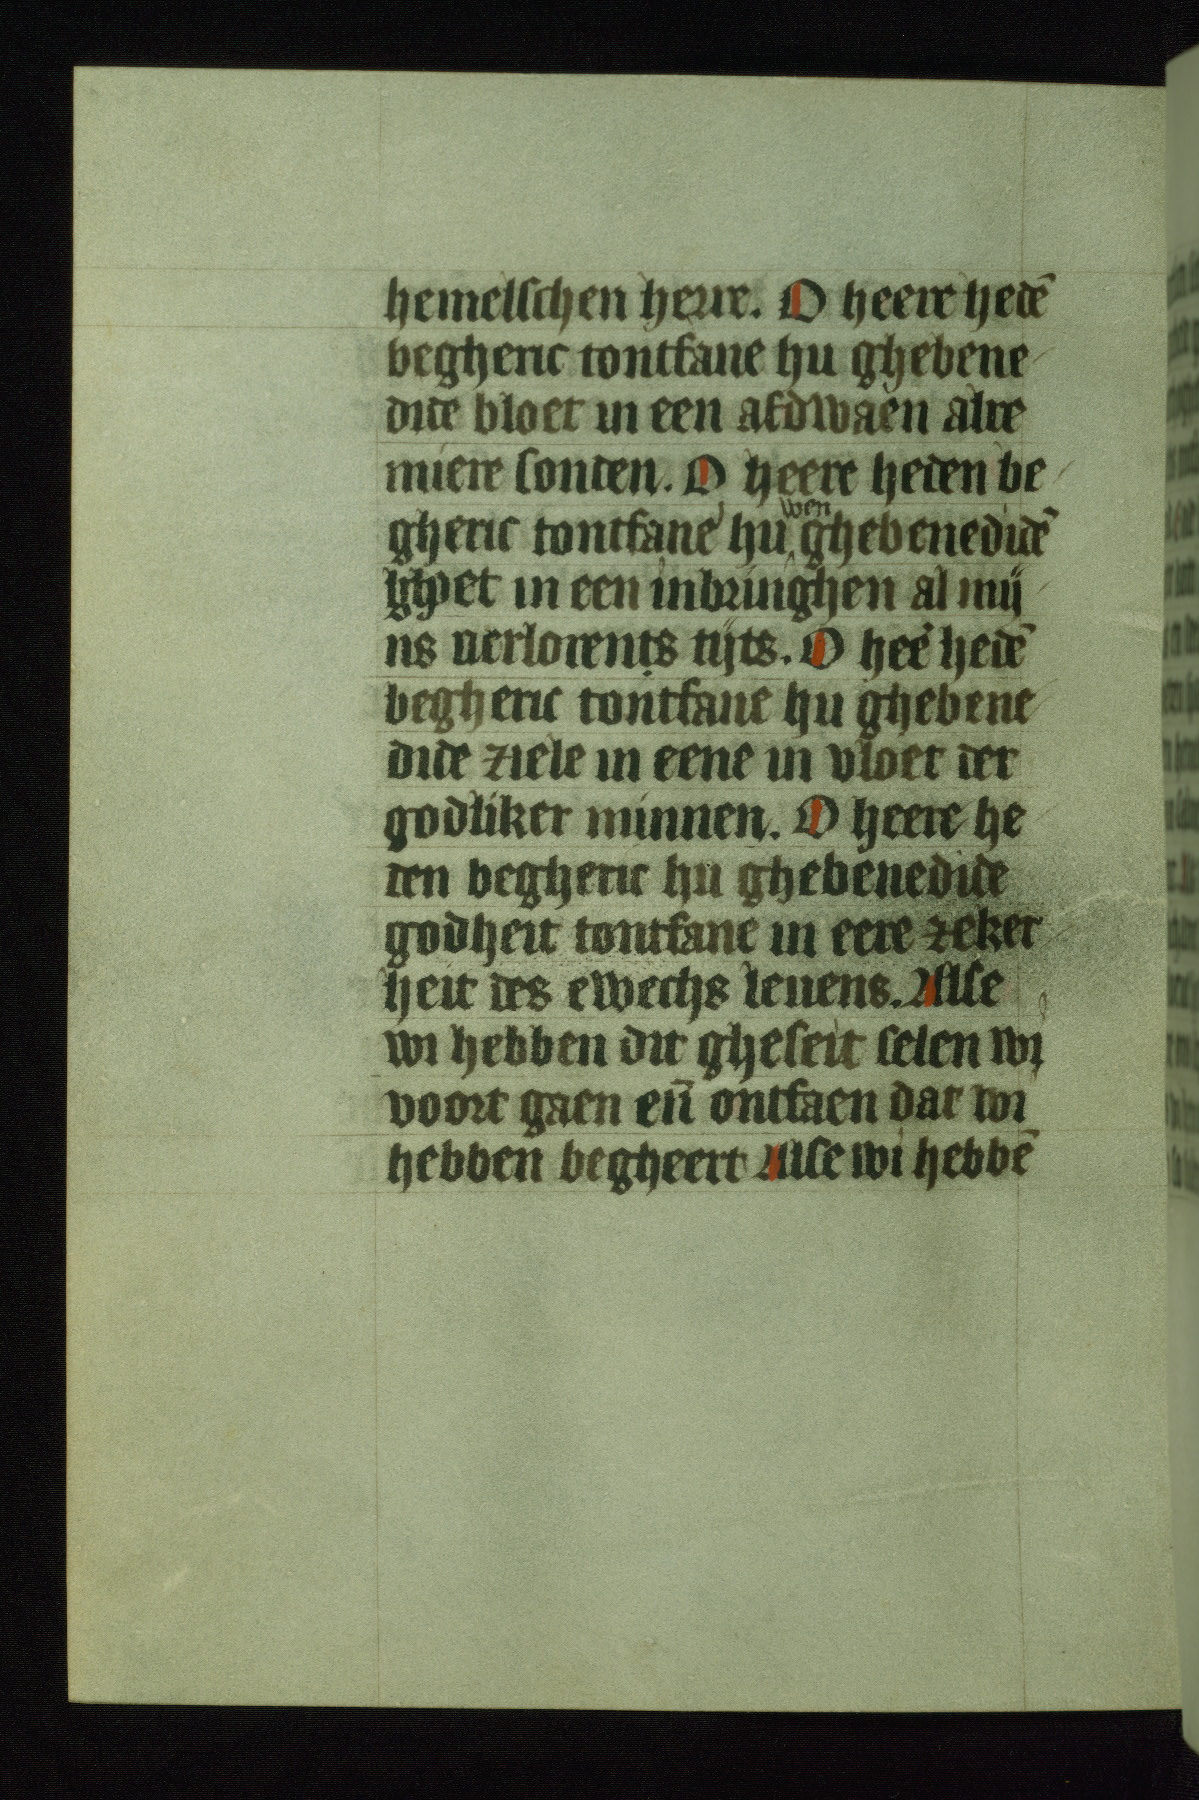 hemelschen herre. O heere hedē
begheric tontfane hu ghebene
dide bloet in een afdwaen alre
miere sonden. O heere heden be
gheric tontfane hu wen ghebenedidē
gheet in een inbringhen al mij
ns verlorents tijts. O heē hedē
begheric tontfane hu ghebene
dide ziele in eene in vloet der
godliker minnen. O heere he
den begheric hu ghebenedide
godheit tontfane in eere zeker
heit des ewechs leuens. Alse
wi hebben dit gheseit selen wi
voort gaen en̄ ontfaen dat wi
hebben begheert Alse wi hebbē